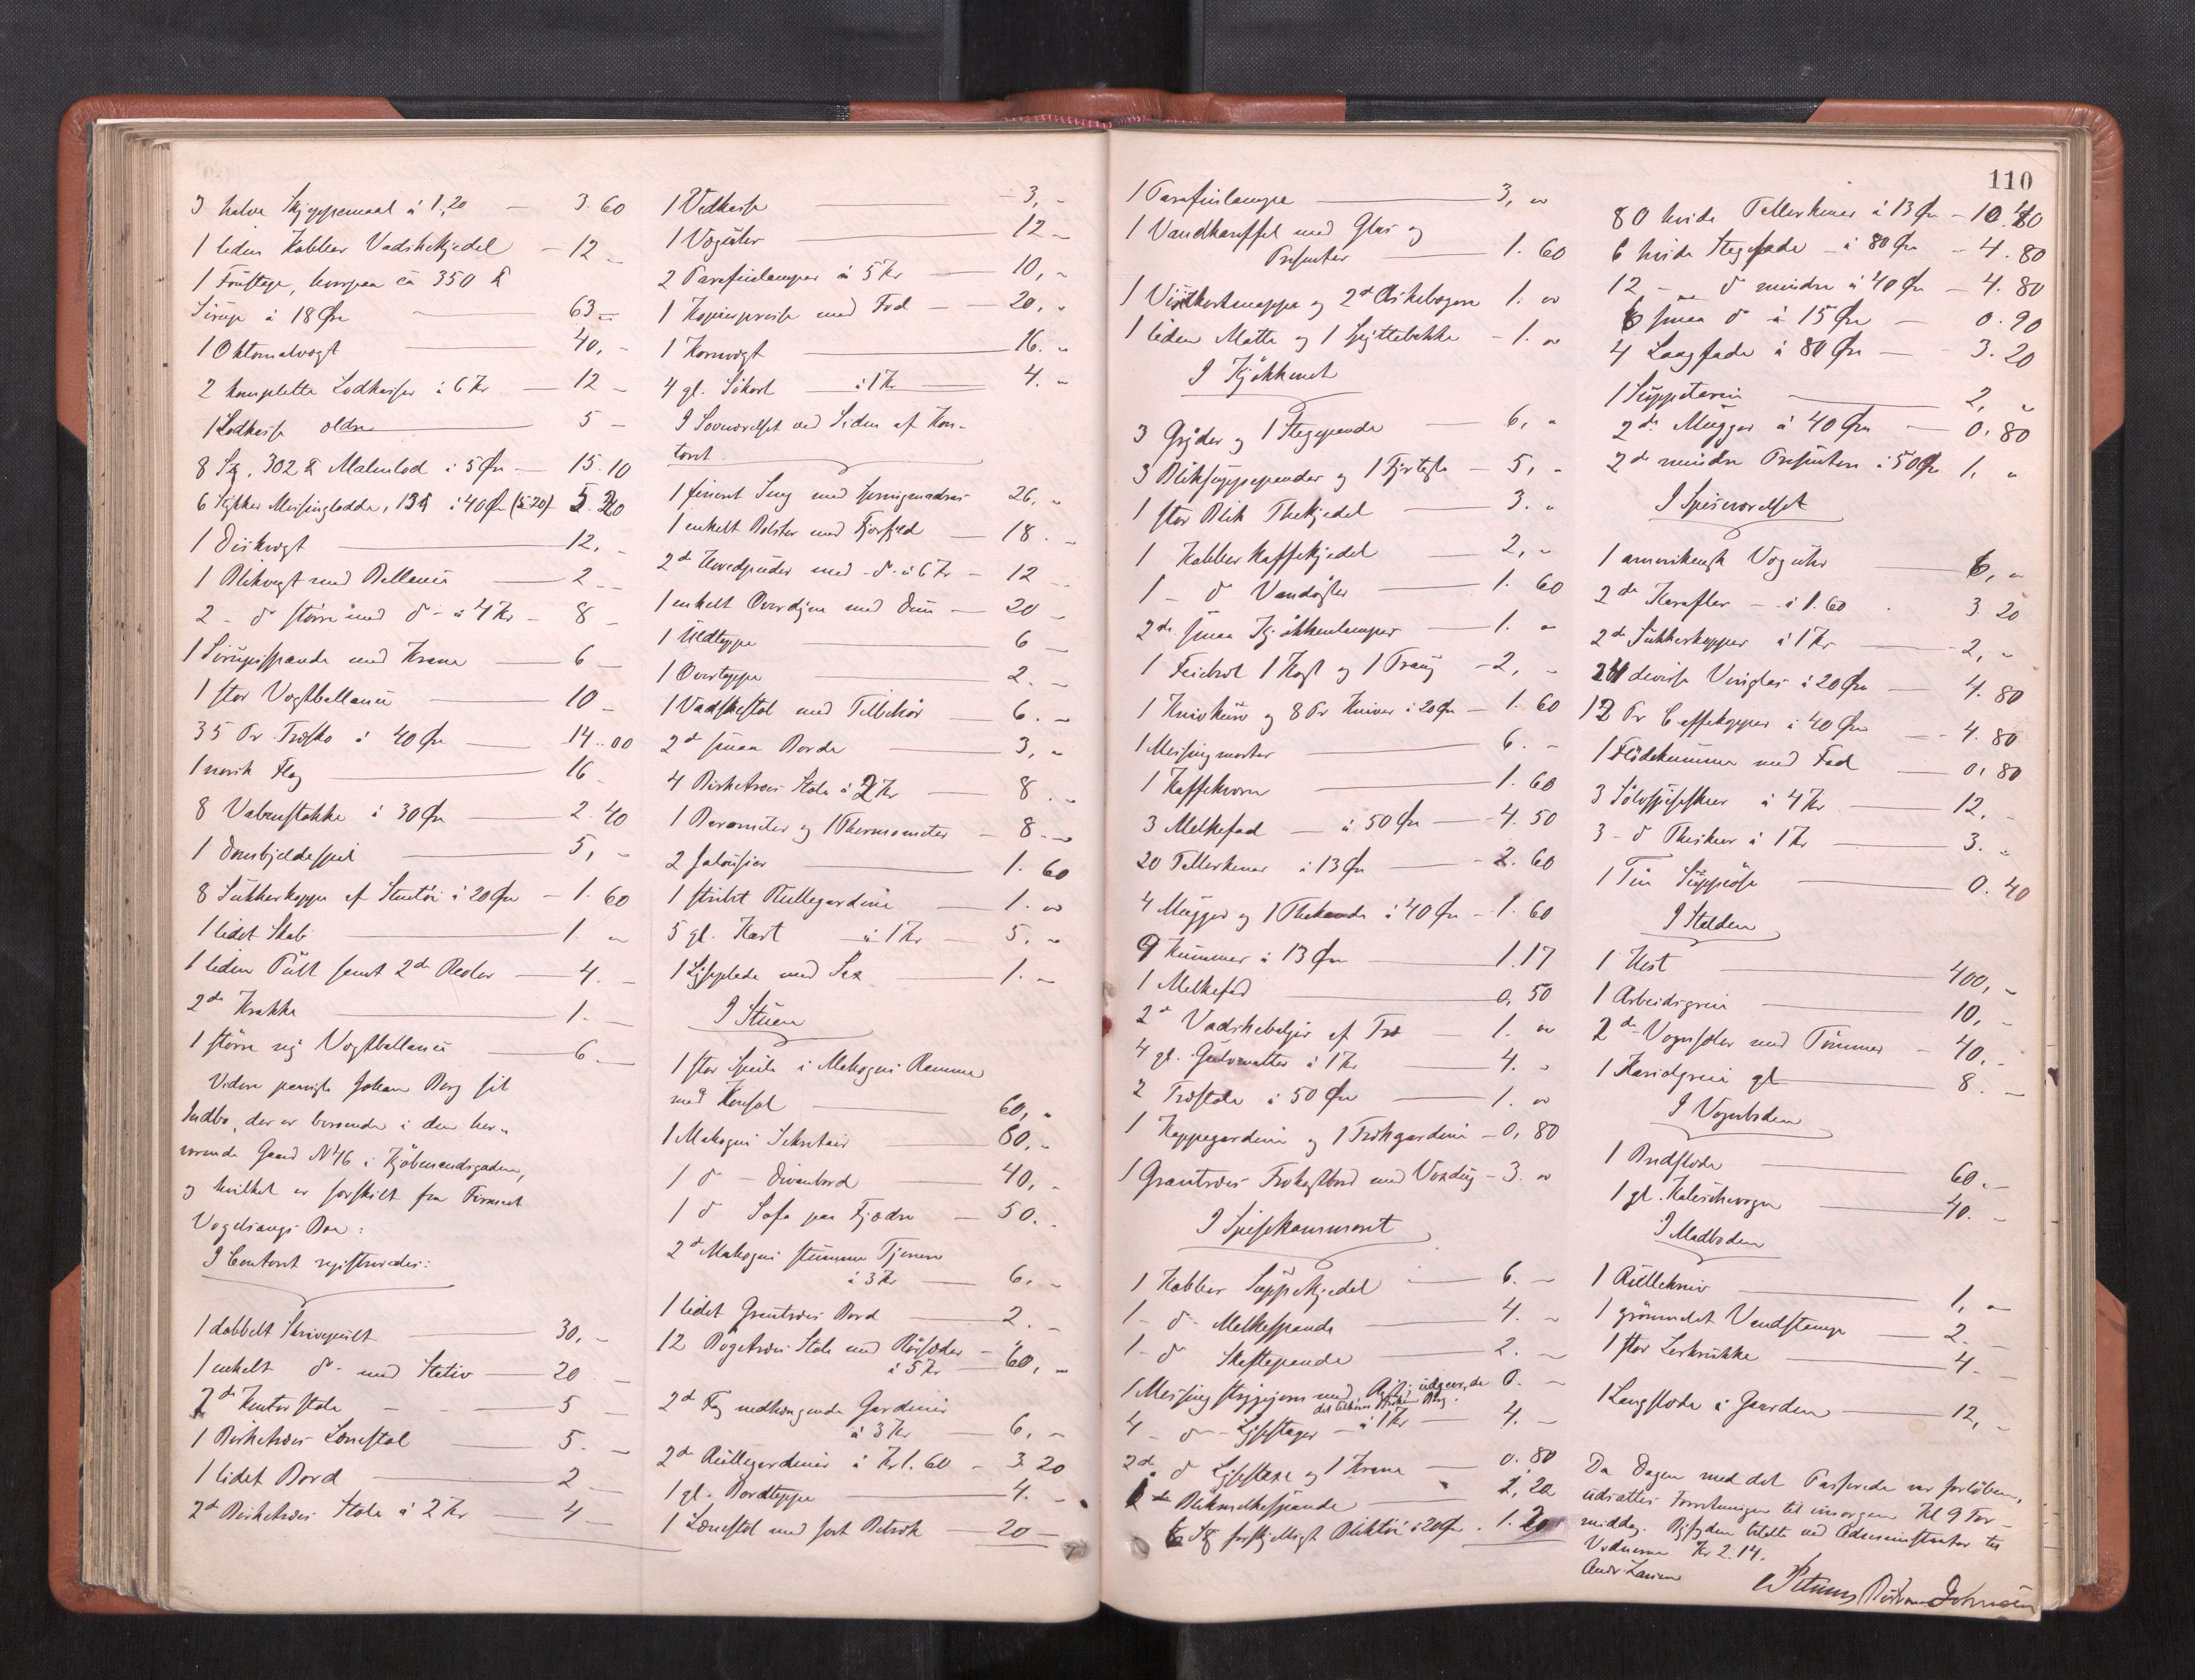 3 halve Skjeppemaal á 1,20 — 3.60
1 liden Kobber Vadskekjedel — 12 —
1 Foustage, hvorpaa ca 350 ℔
Sirup á 18 Øre — 63 —
1 Oktomalvægt — 40, -
2 komplette Lodkasser á 6 Kr — 12 —
1 Lodkasse ældre — 5 —
8 St. 302 ℔ Malmlod á 5 Øre — 15.10
6 Stykker Messinglodde, 13 ℔ á 40 Ør (5.20) 5.20
1 Diskvægt — 12, -
1 Blikvægt med Ballance — 2 -
2 - do større med do - á 4 Kr — 8 -
1 Sirupsspande med Krane — 6 —
1 stor Vægtballance — 10 -
35 Par Træsko á 40 Øre — 14.00
1 norsk Flag — 16 -
8 Vabenstokke á 30 Øre — 2.40
1 Dombjeldespil — 5, -
8 Sukkerkopper af Stentöi á 20 Øre — 1.60
1 lidet Skab — 1. -
1 liden Pult samt 2de Reoler — 4. -
2de Krakke — 1. —
1 större ny Vægtballance — 6. —
Videre paaviste Johan Berg sit
Indbo, der er beroende i den her-
værende Gaard N 46 i Kjöbmandsgaden,
og hvilket er forskilt fra Firmaet
Vogelsangs Boe:
I Contoret registreredes:
1 dobbelt Skrivepult — 30, -
1 enkelt do - med Stativ — 20 —
2de Kontorstole — 5 —
1 Birketræes Lænestol — 5. —
1 lidet Bord — 2 —
2de Birketræes Stole á 2 Kr — 4 —
1 Vedkasse — 3, -
1 Væguhr — 12 -
2 Parafinlamper á 5 Kr — 10, -
1 Kopierpresse med Fod — 20, -
1 Kornvægt — 16. -
4 gl. Søkort á 1 Kr — 4. -
I Soveværelset ved Siden af Kon-
toret.
1 fineret Seng med Springmadras 26. -
1 enkelt Bolster med Fjærfyld — 18. -
2de Hovedpuder med - do - á 6 Kr — 12 -
1 enkelt Overdyne med Dun — 20 -
1 Uldteppe — 6 -
1 Overteppe — 2. -
1 Vadskestol med Tilbehör — 6. -
2de smaa Borde — 3, -
4 Birketræes Stole á 2 Kr — 8. -
1 Barometer og 1 Thermometer — 8. -
2 Jalousier — 1.60
1 stribet Rullegardine — 1. -
5 gl. Kart — á 1 Kr — 5. -
1 Lyseplade med Sax — 1. -
I Stuen
1 stor Speile i Mahogni Ramme
med Konsol — 60, -
1 Mahogni Sekretair — 80, -
1 do - Divanbord — 40, -
1 do Sofa paa Fjædre — 50. -
2de Mahogni stumme Tjenere
á 3 Kr — 6. -
1 lidet Grantræes Bord — 2. -
12 Bøgetræes Stole med Rørsæder
á 5 Kr — 60, -
2de Fag nedhængende Gardiner
á 3 Kr — 6, -
2de Rullegardiner á Kr 1.60 — 3.20
1 gl. Bordteppe — 4. -
1 Lænestol med sort Betræk — 20 -
110
1 Parafinlampe — 3, -
1 Vandkaraffel med Glas og
Presenter — 1.60
1 Visitkortmappe og 2de Askebægere 1. -
1 liden Matte og 1 Spyttebakke — 1. -
I Kjökkenet
3 Gryder og 1 Stegepande — 6, -
3 Bliksuppepander og 1 Fyrtejle — 5, -
1 stor Blik Thekjedel — 3. -
1 Kobber Kaffekjedel — 2, -
1 - do Vandøse — 1.60
2de smaa Kjökkenlamper — 1. -
1 Feiebret 1 Kost og 1 Traug — 2, -
1 Knivkurv og 8 Par Knive á 20 Øre — 1.60
1 Messingmorter — 6. -
1 Kaffekværn — 1.60
3 Melkefad — á 50 Øre — 4.50
20 Tallerkener á 13 Øre — 2.60
4 Mugger og 1 Thekande á 40 Øre — 1.60
9 Kummer á 13 Øre — 1.17
1 Melkefad — 0,50
2de Vadskebaljer af Træ — 1. -
4 gl. Gulvmatter á 1 Kr — 4. -
2 Træstole á 50 Øre — 1. -
1 Kappegardine og 1 Trækgardine — 0,80
1 Grantræes Frokostbord med Voxdug — 3. -
I Spisekammeret
1 Kobber Suppekjedel — 6. -
1 - do - Melkespande — 4. -
1 - do Skaftepande — 2. -
1 Messing strygejern med Rist; udgaar, da 0. -
det tilhører Broder Berg.
4 - do - Lysestager — á 1 Kr — 4. -
2de do Lysesaxe og 1 Krane — 0.80
Blikmelkespande — 1,20
6 St forskjelligt Bliktöi á 20 Øre. 1.20
80 hvide Tallerkener á 13 Øre — 10.40
6 hvide Stegefade — á 80 Øre — 4.80
12 - do mindre á 40 Øre — 4.80
6 smaa do á 15 Øre — 0.90
4 Laagfade á 80 Øre — 3.20
1 Suppeterrin — 2, -
2de Mugger á 40 Øre — 0.80
2de mindre Presentere á 50 Øre 1, -
I Spiseværelset
1 amerikansk Væguhr — 6, -
2de Karafler — á 1.60 . 3.20
2de Sukkerkopper á 1 Kr — 2, -
24 diverse Vinglas á 20 Øre — 4.80
12 Par Caffekopper á 40 Øre — 4.80
1 Flödekumme med Fad — 0,80
3 Sölvspiseskeer á 4 Kr — 12. -
3 - do Theskeer á 1 Kr — 3. -
1 Tin Suppeöse — 0.40
I Stalden
1 Hest — 400, -
1 Arbeidsgreie — 10, -
2de Vognsæler med Tömmer — 40. -
1 Kariolgreie gl — 8. -
I Vognboden
1 Bredslæde — 60. -
1 gl. Kaleschevogn — 40. -
I Madboden
1 Rullekniv — 1, -
1 grönmalet Vandstampe — 2. -
1 stor Lerkrukke — 4. -
1 Langslæde i Gaarden — 12, -
Da Dagen med det Passerede var forløben,
udsattes Forretningen til imorgen Kl 9 For-
middag. Betalte ved Administrator til
Vidnerne Kr 2.14.
Andr Larsen